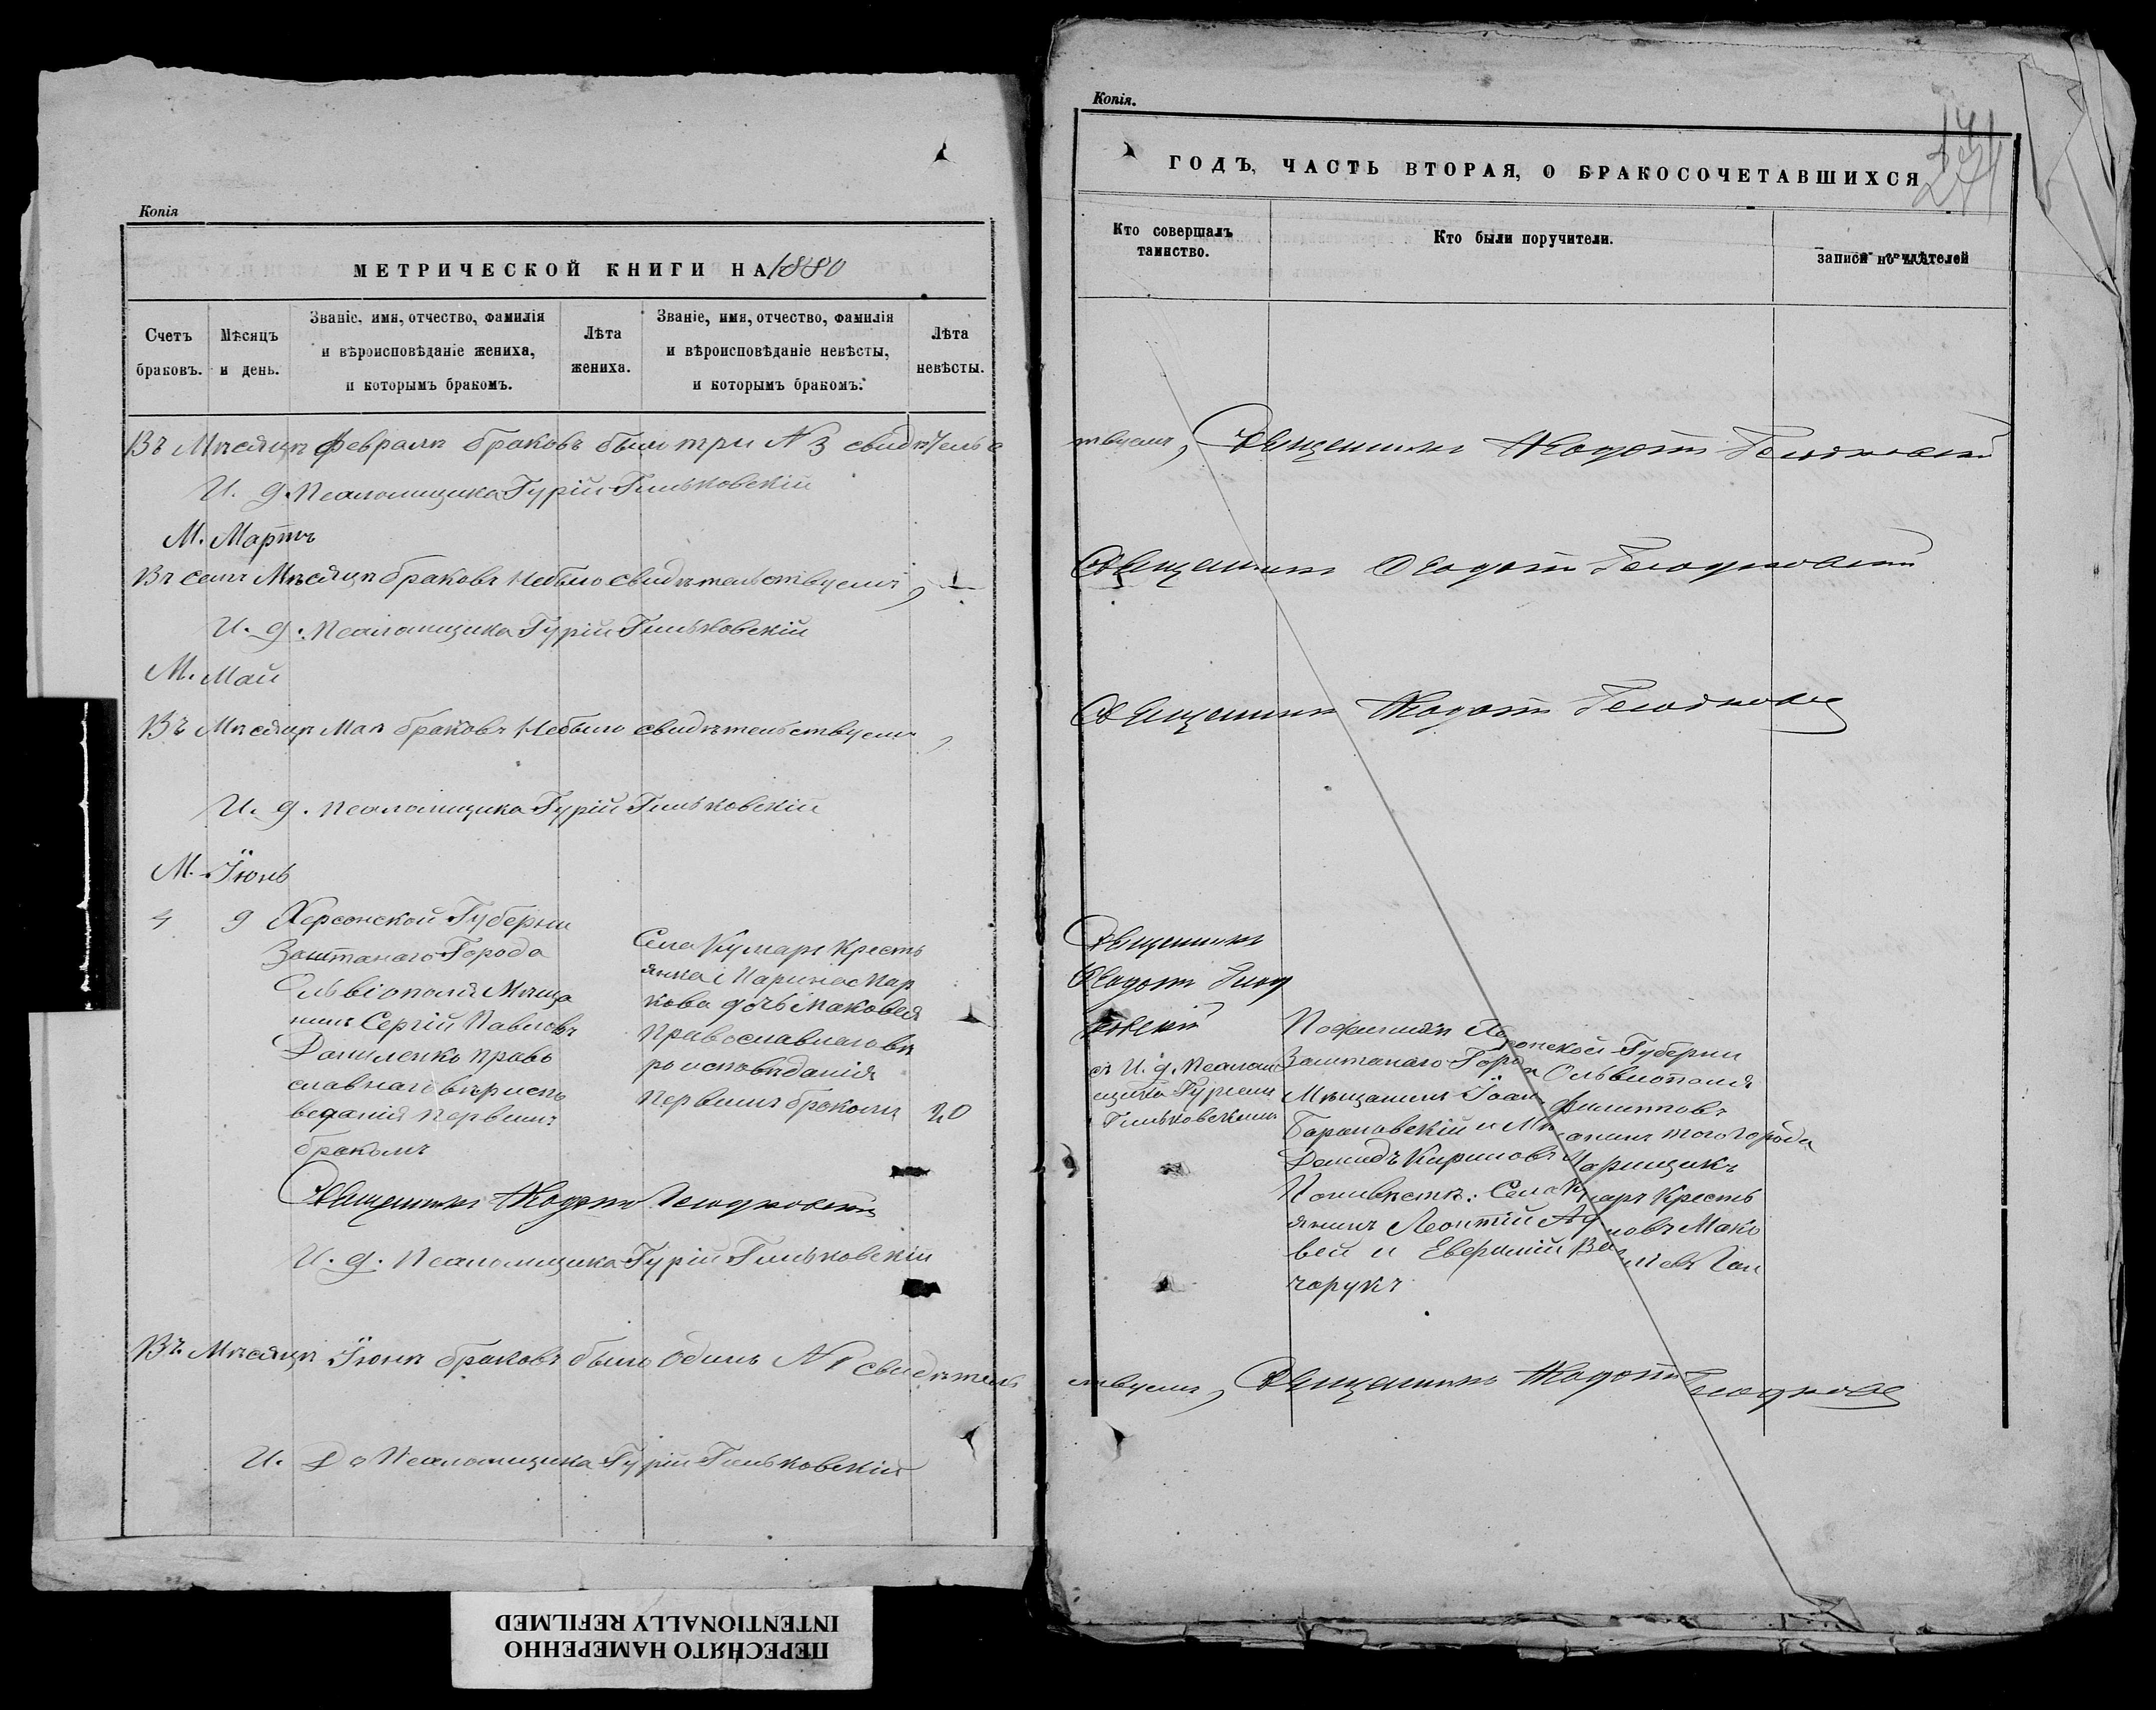 Копія
МЕТРИЧЕСКОЙ КНИГИ НА 1880
Счетъ браковъ.
Мѣсяцъ и день.
Званіе, имя, отчество, фамилія и вѣроисповѣданіе жениха, и которымъ бракомъ.
Лѣта жениха.
Званіе, имя, отчество, фамилія и вѣроисповѣданіе невѣсты, и которымъ бракомъ.
Лѣта невѣсты.
Въ Мѣсяцѣ Февралѣ браковъ было три № 3 свидѣтельс
И. д. Псаломщика Гурій Гильковскій
М. Мартъ
Въ семъ Мѣсяцѣ браковъ Небыло свидѣтельствуемъ,
И. д. Псаломщика Гурій Гильковскій
М. Май
Въ Мѣсяцѣ Маѣ браковъ Небыло свидѣтельствуемъ,
И. д. Псаломщика Гурій Гильковскій
М. Іюнь
4 9 Херсонской Губерніи
Заштатнаго Города
Ольвіополя Мѣща
нинъ Сергій Павловъ
Даниленко право
славнаго вѣриспо
веданія первымъ
бракомъ
Села Кумары Кресть
янка
кова дочь Маковея
Православнаго вѣ
роисповѣданія
Первымъ бракомъ 20
Священникъ Ѳеодотъ
И. д. Псаломщика Гурій Гильковскій
Въ Мѣсяцѣ Іюнѣ браковъ было Одинъ № 1 свидѣтель
И. До Псаломщика Гурій Гильковскій
Копія.
ГОДЪ, ЧАСТЬ ВТОРАЯ, О БРАКОСОЧЕТАВШИХСЯ
Кто совершалъ таинство.
Кто были поручители.
записи
ствуемъ, Священникъ Ѳеодотъ
Священникъ Ѳеодотъ
Священникъ Ѳеодотъ
Священникъ
Ѳеодотъ
съ И. д. Псалом
щика Гуріемъ
Гильковскимъ
Поженихѣ Херсонской Губерніи
Заштатнаго Города Ольвіополя
Мѣщанинъ Іоанъ Филиповъ
Барановскій и Мѣщанинъ того Города
Демидъ Кириловъ
Поневѣстѣ: Села Кумары Кресть
янинъ Леонтій Мако
вей и
чарукъ
ствуемъ, Священникъ Ѳеодотъ
ПЕРЕСНЯТО НАМЕРЕННО
INTENTIONALLY REFILMED